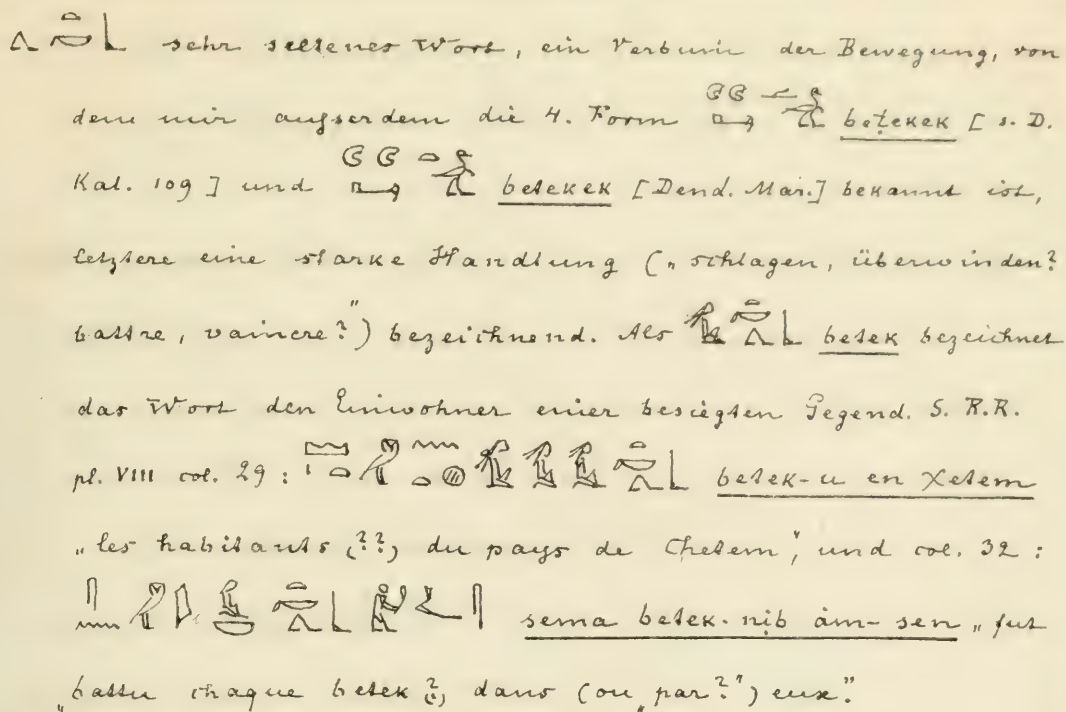 sehr seltenes Wort, ein Verbum der Bewegung, von
dem mir ausserdem die 4. Form beṭekek [s. D.
Kal. 109] und betekek [Dend. Mar.] bekannt ist,
letztere eine starke Handlung („schlagen, überwinden?
battre, vaincre?") bezeichnend. Als betek bezeichnet
das Wort den Einwohner einer besiegten Gegend. S. R.R.
pl. VIII col. 29 : betek-u en Xetem
„les habitants (??) du pays de Chetem", und col. 32 :
sema betek-nib àm-sen „fut
battu chaque betek (?) dans (ou „par?") eux".